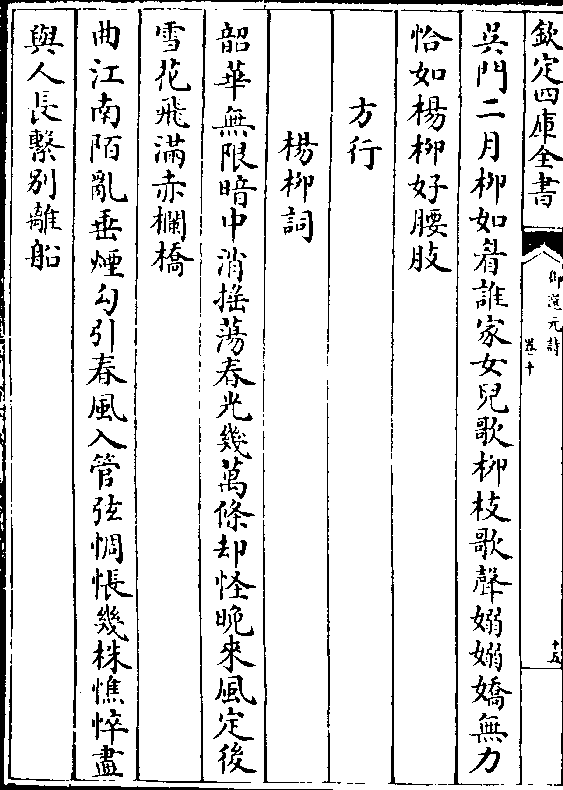 欽定四庫全書
御選元詩
卷十
十五
吳門二月柳如着誰家女兒歌柳枝歌聲嫋嫋嬌無力
恰如楊柳好腰肢
方行
楊柳詞
韶華無限暗中消揺蕩春光幾萬條却怪晚來風定後
雪花飛滿赤欄橋
曲江南陌亂垂煙勾引春風入管弦惆悵幾株憔悴盡
與人長繫别離船